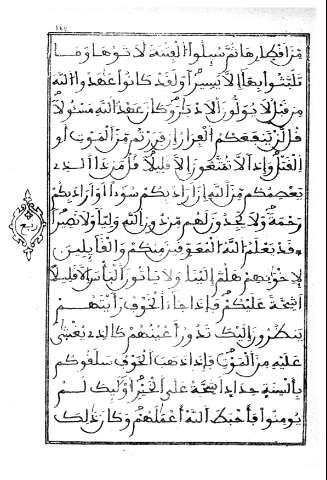 مِّنَ اَقْطارِهَا ثُمَّ سُئِلُوا الْفِتْنَةَ لَأَتَوْهَا وَمَا
تَلَبَّثُوا بِهَا إِلَّا يَسِيراً وَلَقَدْ كَانُوا عَٰهَدُوا اللَّهَ
مِن قَبْلُ لَا يُوَلُّونَ الَادْبَٰرَ وَكَانَ عَهْدُ اللَّهِ مَسْئُولاً
قُل لَّنْ يَنفَعَكُمُ الْفِرَارُ إِن فَرَرْتُم مِّنَ الْمَوْتِ أَوِ
الْقَتْلِ وَإِذاً لَّا تُمَتَّعُونَ إِلَّا قَلِيلاً قُلْ مَن ذَا الَّذِي
يَعْصِمُكُم مِّنَ اللَّهِ إِنَ اَرَادَ بِكُمْ سُوءاً اَوَ اَرَادَ بِكُمْ
رَحْمَةً وَلَا يَجِدُونَ لَهُم مِّن دُونِ اللَّهِ وَلِيّاً وَلَا نَصِيراً
قَدْ يَعْلَمُ اللَّهُ الْمُعَوِّقِينَ مِنكُمْ وَالْقَائِلِينَ
لِإِخْوَٰنِهِمْ هَلُمَّ إِلَيْنَا وَلَا يَاتُونَ الْبَأْسَ إِلَّا قَلِيلاً
اَشِحَّةً عَلَيْكُمْ فَإِذَا جَاءَ الْخَوْفُ رَأَيْتَهُمْ
يَنظُرُونَ إِلَيْكَ تَدُورُ أَعْيُنُهُمْ كَالَّذِي يُغْشَىٰ
عَلَيْهِ مِنَ الْمَوْتِ فَإِذَا ذَهَبَ الْخَوْفُ سَلَقُوكُم
بِأَلْسِنَةٍ حِدَادٍ اَشِحَّةً عَلَى الْخَيْرِ أُولَٰئِكَ لَمْ
يُومِنُوا فَأَحْبَطَ اللَّهُ أَعْمَٰلَهُمْ وَكَانَ ذَٰلِكَ
ربع